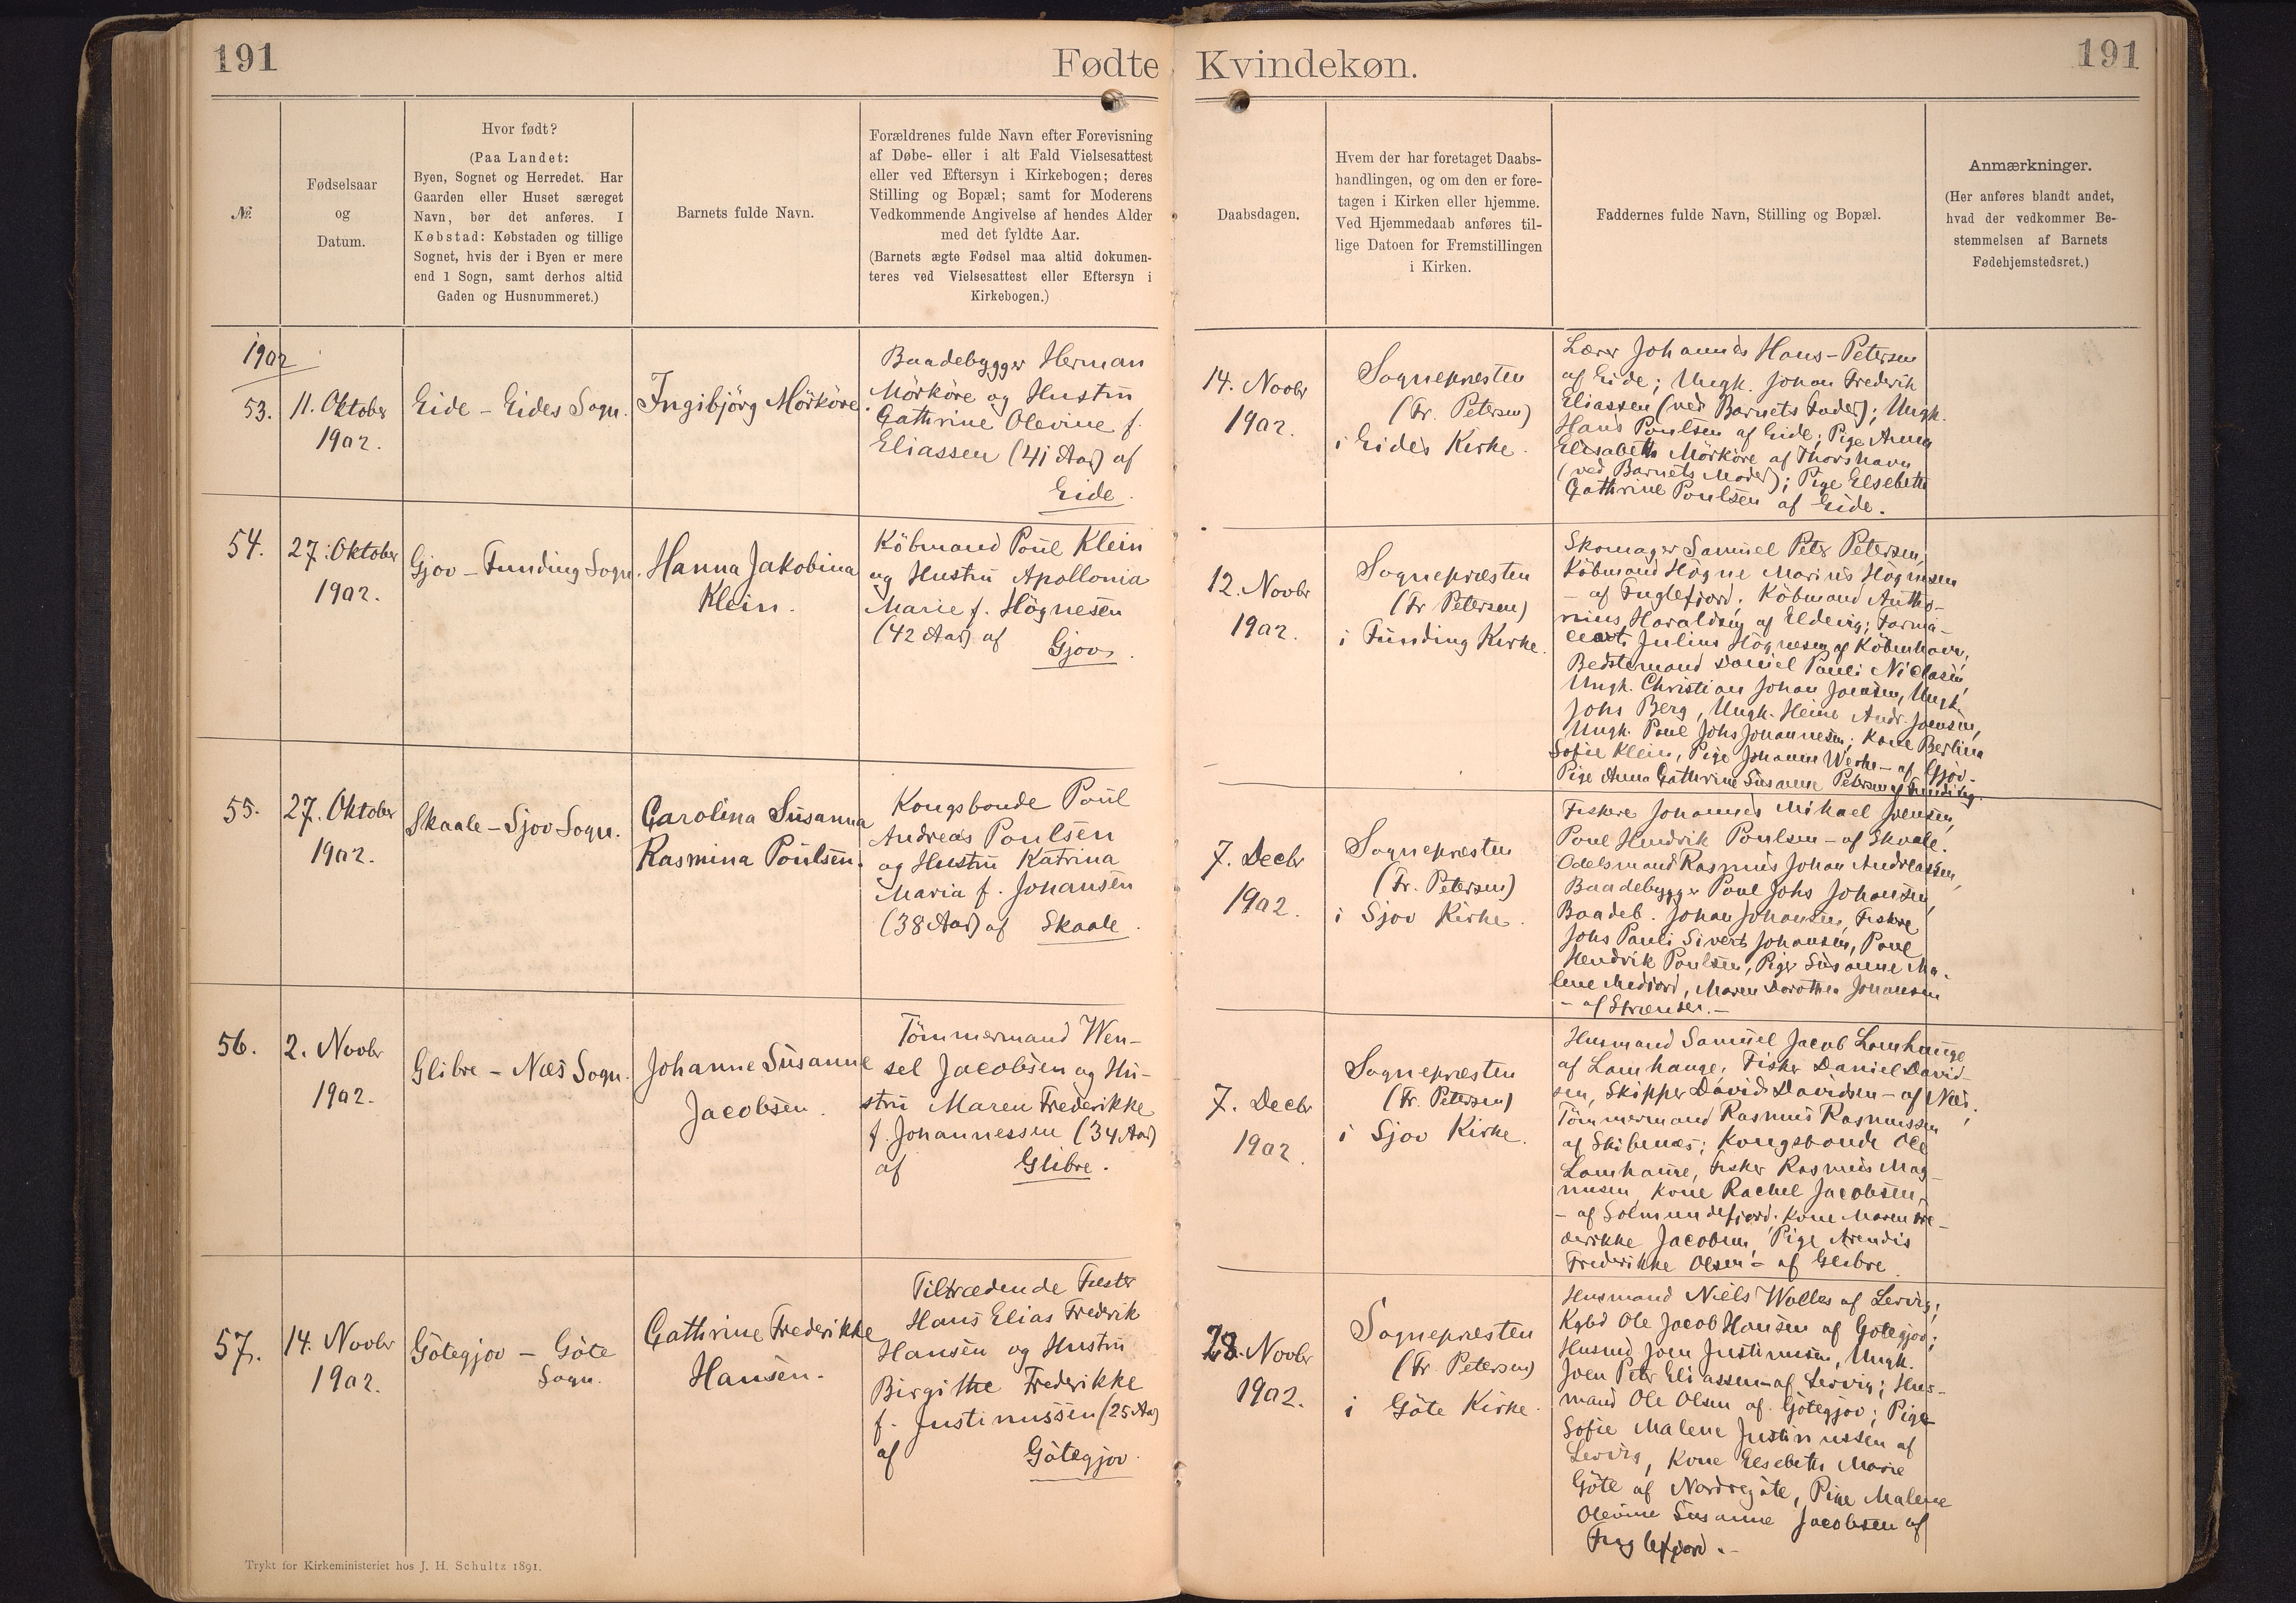 191
Fødte
Kvindekøn.
191
№.
Fødselsaar
og
Datum.
Hvor født?
(Paa Landet:
Byen, Sognet og Herredet. Har
Gaarden eller Huset særeget
Navn, bør det anføres. I
Købstad: Købstaden og tillige
Sognet, hvis der i Byen er mere
end 1 Sogn, samt derhos altid
Gaden og Husnummeret.)
Barnets fulde Navn.
Forældrenes fulde Navn efter Forevisning
af Døbe- eller i alt Fald Vielsesattest
eller ved Eftersyn i Kirkebogen; deres
Stilling og Bopæl; samt for Moderens
Vedkommende Angivelse af hendes Alder
med det fyldte Aar.
(Barnets ægte Fødsel maa altid dokumen-
teres ved Vielsesattest eller Eftersyn i
Kirkebogen.)
Daabsdagen.
Hvem der har foretaget Daabs-
handlingen, og om den er fore-
tagen i Kirken eller hjemme.
Ved Hjemmedaab anføres til-
lige Datoen for Fremstillingen
i Kirken.
Faddernes fulde Navn, Stilling og Bopæl.
Anmærkninger.
(Her anføres blandt andet,
hvad der vedkommer Be-
stemmelsen af Barnets
Fødehjemstedsret.)
1902
53.
11. Oktober
1902.
Eide - Eides Sogn.
Ingibjörg Mörköre.
Baadebygger Herman
Mörköre og Hustru
Cathrine Olevine f.
Eliassen (41 Aar) af
Eide.
14. Novbr
1902.
Sognepræsten
(Fr. Petersen)
i Eides Kirke.
Lærer Johannes Hans-Petersen
af Eide; Ungk. Johan Frederik
Eliassen (ved Barnets Fader); Ungk.
Hans Poulsen af Eide; Pige Anna
Elisabeth Mörköre af Thorshavn
(ved Barnets Moder); Pige Elsebeth
Cathrine Poulsen af Eide.
54.
27. Oktober
1902.
Gjov - Funding Sogn.
Hanna Jakobina
Klein.
Köbmand Poul Klein
og Hustru Apollonia
Marie f. Högnesen
(42 Aar) af
Gjov.
12. Novbr
1902.
Sognepræsten
(Fr Petersen)
i Funding Kirke.
Skomager Samuel Peter Petersen,
Köbmand Högne Marius Högnesen
- af Fuglefjord; Köbmand Antho-
nius Haraldsen af Eldevig; Farma-
ceut Julius Högnesen af Köbenhavn,
Bedstemand Daniel Pauli Niclasen,
Ungk. Christian Johan Joensen, Ungk.
Johs Berg, Ungk. Heine Andr. Joensen,
Ungk. Poul Johs Johannesen; Kone Berlina
Sofie Klein, Pige Johanne - af Gjov -
Pige Anna Cathrine Susanne Petersen af Funding.
55.
27. Oktober
1902.
Skaale - Sjov Sogn.
Carolina Susanna
Rasmina Poulsen.
Kongsbonde Poul
Andreas Poulsen
og Hustru Katrina
Maria f. Johansen
(38 Aar) af Skaale.
7. Decbr
1902.
Sognepræsten
(Fr. Petersen)
i Sjov Kirke.
Fiskere Johannes Mikael Joensen,
Poul Hendrik Poulsen - af Skaale.
Odelsmand Rasmus Johan Andreassen,
Baadebygger Poul Johs Johansen,
Baadeb. Johan Johansen, Fiskere
Johs Pauli Sivert Johansen, Poul
Hendrik Poulsen, Piger Susanne Ma-
lene Midjord, Maren Dorothea Johansen
- af Strænder. -
56.
2. Novbr
1902.
Glibre - Næs Sogn.
Johanne Susanne
Jacobsen.
Tömmermand Wen-
sel Jacobsen og Hu-
stru Maren Frederikke
f. Johannessen (34 Aar)
af Glibre.
7. Decbr
1902.
Sognepræsten
(Fr. Petersen)
i Sjov Kirke.
Husmand Samuel Jacob Lamhauge
af Lamhauge, Fisker Daniel David-
sen, Skipper David Davidsen - af Næs,
Tömmermand Rasmus Rasmussen
af Skibenæs; Kongsbonde Ole
Lamhauge, Fisker Rasmus Mag-
nusen, Kone Rachel Jacobsen,
- af Solmundefjord; Kone Maren Fre-
derikke Jacobsen, Pige Arendis
Frederikke Olsen - af Glibre.
57.
14. Novbr
1902.
Götegjov - Göte
Sogn.
Cathrine Frederikke
Hansen.
Tiltrædende Fæster
Hans Elias Frederik
Hansen og Hustru
Birgithe Frederikke
f. Justinussen (25 Aar)
af Götegjov.
28. Novbr
1902.
Sognepræsten
(Fr. Petersen)
i Göte Kirke.
Husmand Niels Wolles af Lervig;
Kgbd Ole Jacob Hansen af Götegjov;
Husmd Joen Justinussen, Ungk.
Joen Peter Eliassen - af Lervig; Hus-
mand Ole Olsen af Götegjov; Pige
Sofie Malene Justinussen af
Lervig, Kone Elsebeth Marie
Göte af Nordregöte, Pige Malene
Olevine Susanne Jacobsen af
Fuglefjord. -
Trykt for Kirkeministeriet hos J. H. Schultz 1891.